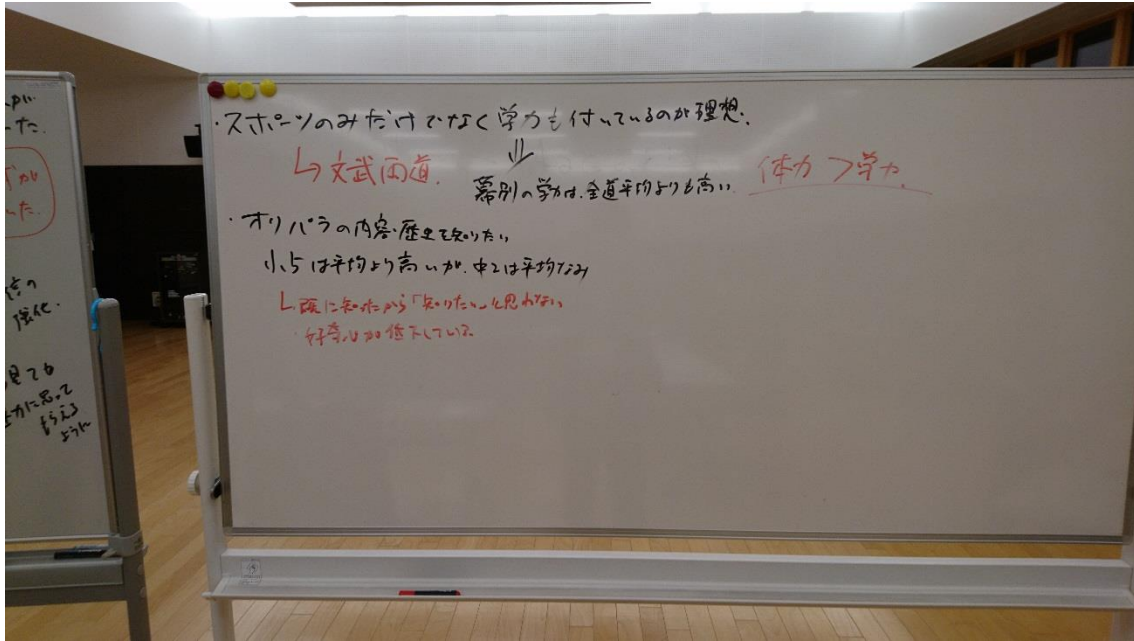 ・スポーツのみだけでなく学力も付いているのが理想.
↳文武両道.
⇓
幕別の学力は、全道平均よりも高い
体力>学力.
・オリパラの内容・歴史を知りたい
小5は平均より高いが、中2は平均なみ
↳既に知ったから「知りたい」と思わない
・好奇心が低下している
た.
が
た.
の
強化.
見ても
力に思って
もらえる
ように